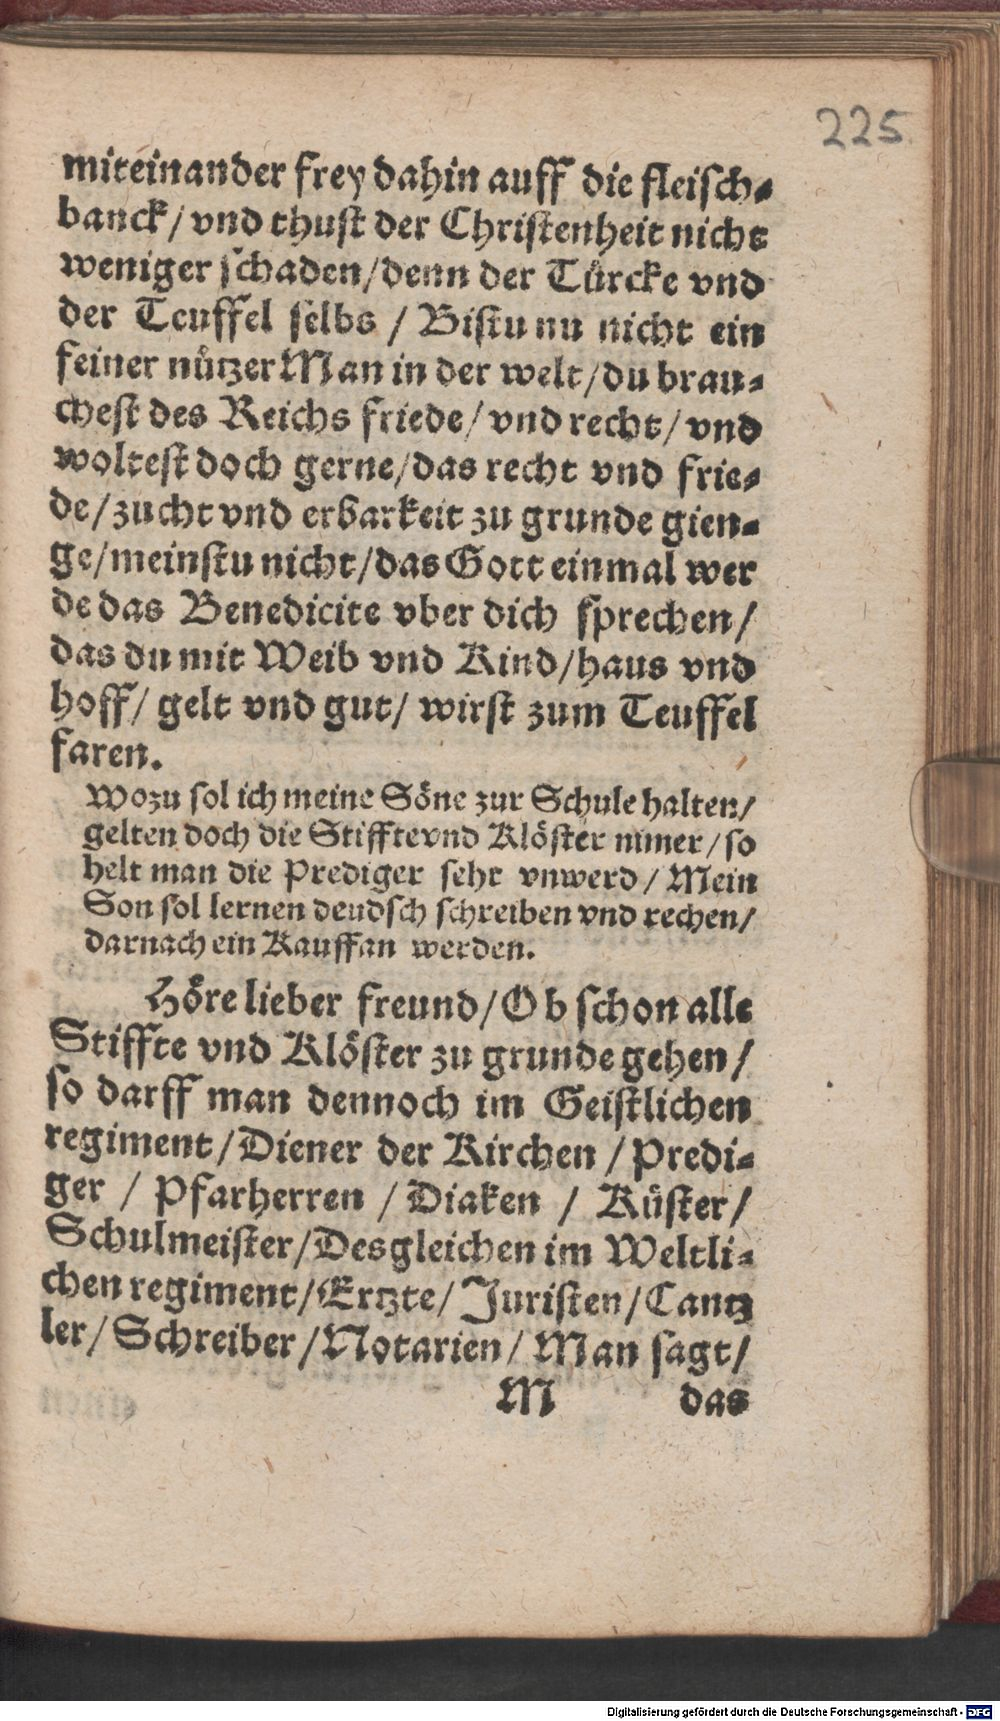 225
miteinander frey dahin auff die fleisch⸗
banck/ vnd thust der Christenheit nicht
weniger schaden/denn der Türcke vnd
der Teuffel selbs / Bistu nu nicht ein
feiner nützer Man in der welt/du brau⸗
chest des Reichs friede/ vnd recht/ vnd
woltest doch gerne/das recht vnd frie⸗
de/zucht vnd erbarkeit zu grunde gien⸗
ge/meinstu nicht/das Gott einmal wer
de das Benedicite vber dich sprechen/
das du mit Weib vnd Kind/haus vnd
hoff/ gelt vnd gut/ wirst zum Teuffel
faren.
Wozu sol ich meine Söne zur Schule halten/
gelten doch die Stiffte vnd Klöster nimer/so
helt man die Prediger sehr vnwerd/ Mein
Son sol lernen deudsch schreiben vnd rechen/
darnach ein Kauffan werden.
Höre lieber freund/Ob schon alle
Stiffte vnd Klöster zu grunde gehen/
so darff man dennoch im Geistlichen
regiment/Diener der Kirchen /Predi⸗
ger / Pfarherren / Diaken / Küster/
Schulmeister/Desgleichen im Weltli⸗
chen regiment/Ertzte/ Juristen/Cantz
ler/Schreiber/Notarien/ Man sagt/
M das
Digitalisierung gefördert durch die Deutsche Forschungsgemeinschaft - DFG